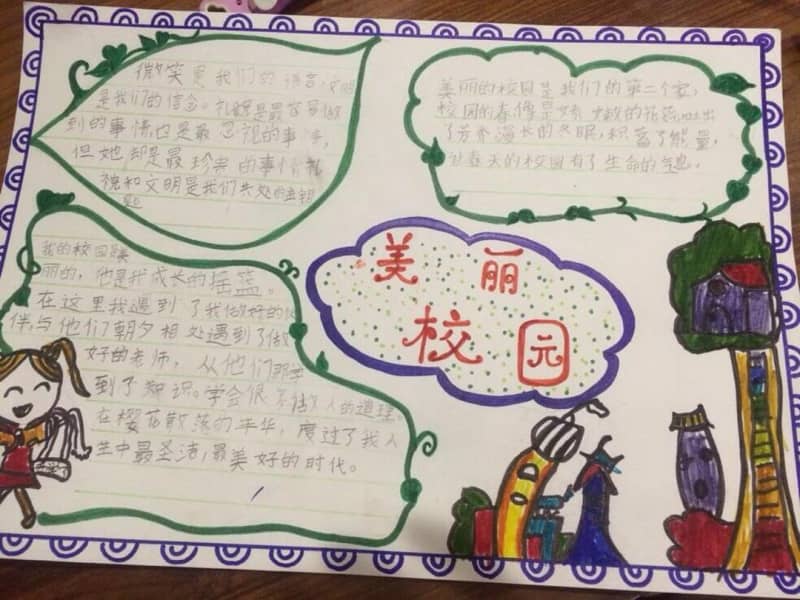 微笑是我们的语言,文明
是我们的信念。礼貌是最容易做
到的事情,也是最忽视的事情,
但她却是最珍贵的事情礼
貌和文明是我们共处的
美丽的校园是我们的第二个家,
校园的春像是娇嫩的花苞,吐出
了芬香漫长的冬眠,积蓄了能量,
让春天的校园有了生命的气息。
美丽
校园
我的校园是美
丽的,他是我成长的摇篮。
在这里我遇到了我做好的伙
伴与他们朝夕相处遇到了做
好的老师,从他们那学
到了知识。学会很多做人的道理。
在樱花散落的年华,度过了我人
生中最圣洁,最美好的时代。